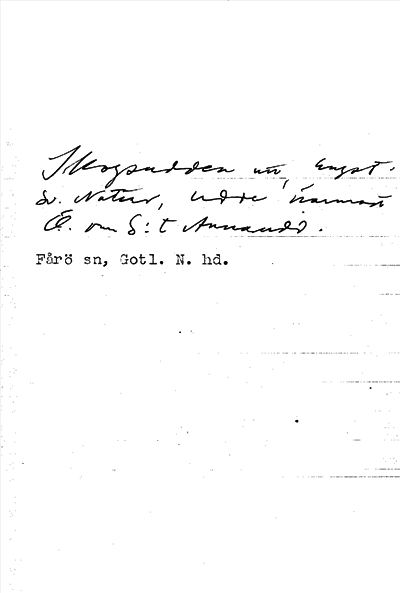 Skogsudden nu, Engst.
Sv. Natur, udde närmast
Ö. om S:t Annaudd.
Fårö sn, Gotl. N. hd.